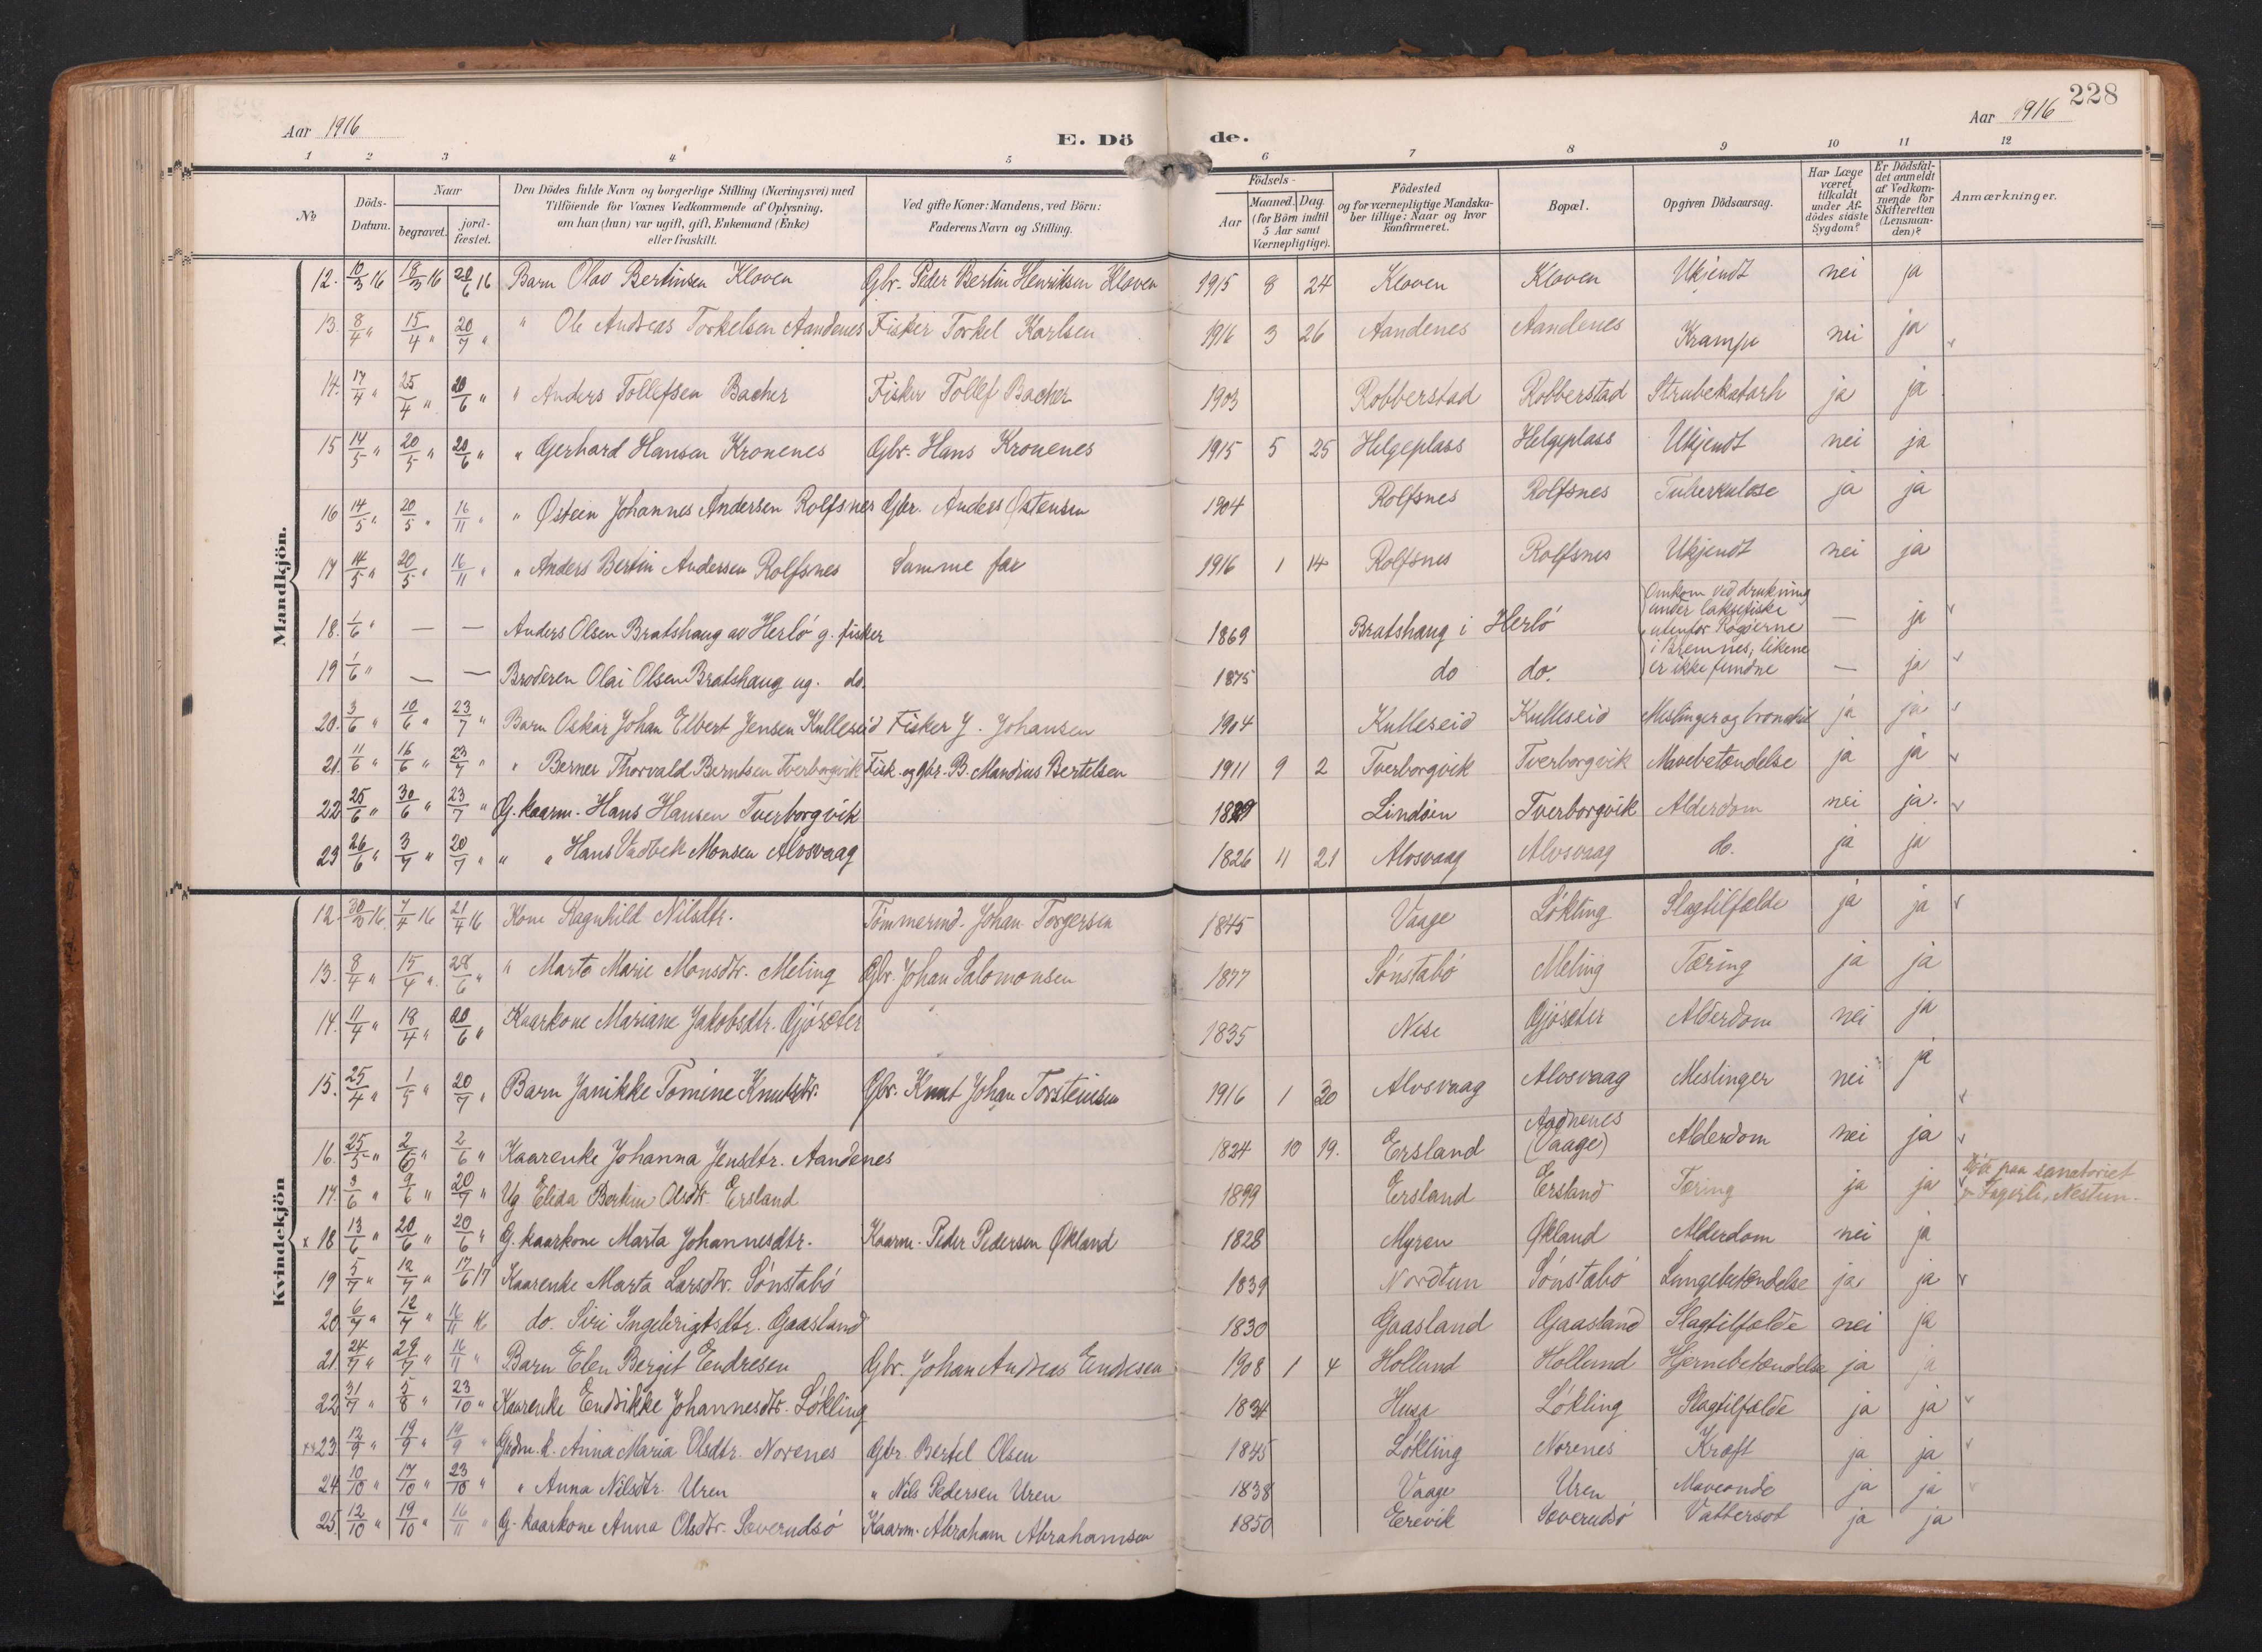 228
Aar 1916
E. Dö
de.
Aar 1916
1 2 3 4 5 6 7 8 9 10 11 12
No
Döds-Datum.
Naar
begravet.
jord-fæstet.
Den Dödes fulde Navn og borgerlige Stilling (Næringsvei) med
Tilföiende for Voxnes Vedkommende af Oplysning,
om han (hun) var ugift, gift, Enkemand (Enke)
eller fraskilt.
Ved gifte Koner: Mandens, ved Börn:
Faderens Navn og Stilling.
Födsels-
Aar
Maaned. Dag.
(for Börn indtil
5 Aar samt
Værnepligtige).
Födested
og for værnepligtige Mandska-
ber tillige: Naar og hvor
konfirmeret.
Bopæl.
Opgiven Dödsaarsag.
Har Læge
været
tilkaldt
under Af-
dödes sidste
Sygdom?
Er Dödsfal-
det anmeldt
af Vedkom-
mende for
Skifteretten
(Lensman-
den)?
Anmærkninger.
Mandkjön.
12. 10/3 16 18/3 16 20/6 16 Barn Olav Bertinsen Kloven Gbr. Peder Bertin Henriksen Kloven 1915 8 24 Kloven Kloven Ukjendt nei ja
13. 8/4 " 15/4 " 20/7 " " Ole Andreas Torkelsen Aandenes Fisker Torkel Karlsen 1916 3 26 Aandenes Aandenes Krampe nei ja
14. 17/4 " 25/4 " 20/6 " " Anders Tollefsen Bacher Fisker Tollef Bacher 1903 Robberstad Robberstad Strubekatarh ja ja
15 14/5 " 20/5 " 20/6 " " Gerhard Hansen Kronenes Gbr. Hans Kronenes 1915 5 25 Helgeplass Helgeplass Ukjendt nei ja
16 14/5 " 20/5 " 16/11 " " Østein Johannes Andersen Rolfsnes Gbr. Anders Østensen 1904 Rolfsnes Rolfsnes Tuberkulose ja ja
17 14/5 " 20/5 " 16/11 " " Anders Bertin Andersen Rolfsnes Samme far 1916 1 14 Rolfsnes Rolfsnes Ukjendt nei ja
18. 1/6 " — — Anders Olsen Bratshaug av Herlö g. fisker 1869 Bratshaug i Herlö Omkom ved drukning
under laksefiske
utenfor Røgøerne
i Bremnes, likene
er ikke fundne — ja
19 1/6 " — — Broderen Olai Olsen Bratshaug ug. do. 1875 do do. — ja
20. 3/6 " 10/6 " 23/7 " Barn Oskar Johan Elbert Jensen Kulleseid Fisker J. Johansen 1904 Kulleseid Kulleseid Meslinger og bronchit ja ja
21. 11/6 " 16/6 " 23/7 " " Berner Thorvald Berntsen Tverborgvik Fisk. og gbr. B. Mandius Bertelsen 1911 9 2 Tverborgvik Tverborgvik Mavebetændelse ja ja
22 25/6 " 30/6 " 23/7 " G. kaarm. Hans Hansen Tverborgvik 1829 Lindøen Tverborgvik Alderdom nei ja.
23 26/6 " 3/7 " 20/7 " " " Hans Vadbek Monsen Alvsvaag 1826 4 21 Alvsvaag Alvsvaag do. ja ja
Kvindekjön
12. 30/3 16. 7/4 16 21/4 16 Kone Ragnhild Nilsdtr. Tömmermd. Johan Torgersen 1845 Vaage Lökling Slagtilfælde ja ja
13. 8/4 " 15/4 " 28/6 " " Marta Marie Monsdtr. Meling Gbr. Johan Salomonsen 1877 Sönstabö Meling Tæring ja ja
14. 11/4 " 18/4 " 20/6 " Kaarkone Mariane Jakobsdtr. Gjösæter 1835 Nese Gjösæter Alderdom nei ja
15. 25/4 " 1/5 " 20/7 " Barn Janikke Tomine Knutsdtr. Gbr. Knut Johan Torsteinsen 1916 1 30 Alvsvaag Alvsvaag Meslinger nei ja
16. 25/5 " 2/6 " 2/6 " Kaarenke Johanna Jensdtr. Aandenes 1824 10 19. Ersland Aadnenes
(Vaage) Alderdom nei ja
17. 3/6 " 9/6 " 20/7 " Ug Elida Bertine Olsdtr. Ersland 1899 Ersland Ersland Tæring ja ja Död paa sanatoriet
Fagerli, Nestun.
x 18 13/6 " 20/6 " 20/6 " G. kaarkone Marta Johannesdtr. Kaarm. Peder Pedersen Økland 1828 Myren Økland Alderdom nei ja
19 5/7 " 12/7 " 17/6 17 Kaarenke Marta Larsdtr. Sönstabö 1839 Nordtun Sönstabö Lungebetændelse ja ja
20 6/7 " 12/7 " 16/11 16 do. Siri Ingebrigtsdtr. Gaasland 1830 Gaasland Gaasland Slagtilfælde nei ja
21. 24/7 " 29/7 " 16/11 " Barn Elen Bergit Endresen Gbr. Johan Andreas Endresen 1908 1 4 Hollund Hollund Hjernebetændelse ja ja
22 31/7 " 5/8 " 23/10 " Kaarenke Endrikke Johannesdtr. Lökling 1834 Husa Lökling Slagtilfælde ja ja
23. 12/9 " 19/9 " 19/9 " Gbdm. k. Anna Maria Olsdtr. Norenes Gbr. Bertel Olsen 1845 Lökling Norenes Kræft ja ja
24. 10/10 " 17/10 " 23/10 " " Anna Nilsdtr. Uren " Nils Pedersen Uren 1838 Vaage Uren Maveonde ja ja
25. 12/10 " 19/10 " 16/11 " G. kaarkone Anna Olsdtr. Soverudsö Kaarm. Abraham Abrahamsen 1850 Eerevik Soverudsö Vattersot ja ja